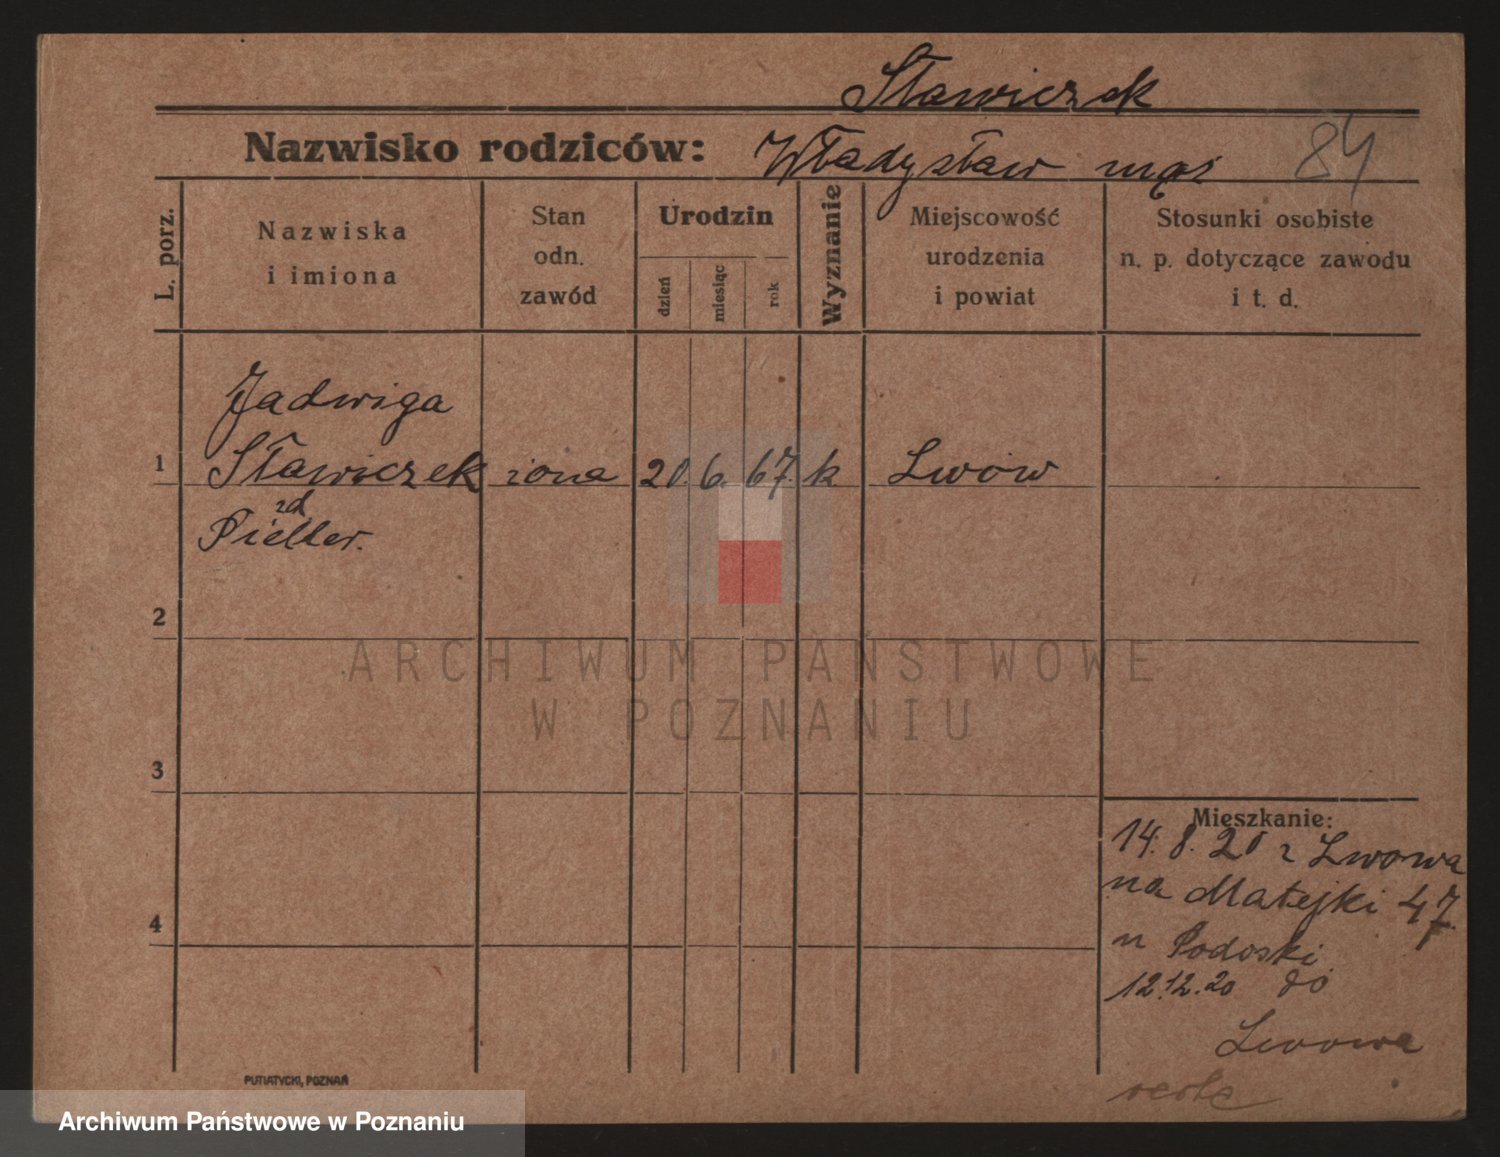 Sławiczek
Nazwisko rodziców: Władysław mąż 84
L. porz.
Nazwiska
i imiona
Stan
odn.
zawód
Urodzin
dzień
miesiąc
rok
Wyznanie
Miejscowość
urodzenia
i powiat
Stosunki osobiste
n. p. dotyczące zawodu
i t. d.
Jadwiga
1 Sławiczek żona 20. 6. 67. k Lwów
zd
2
3
4
Mieszkanie:
14. 8. 20 z Lwowa
na Matejki 47
u Podoski
12.12.20 do
Lwowa
ARCHIWUM PAŃSTWOWE
W POZNANIU
PUTIATYCKI, POZNAŃ
Archiwum Państwowe w Poznaniu